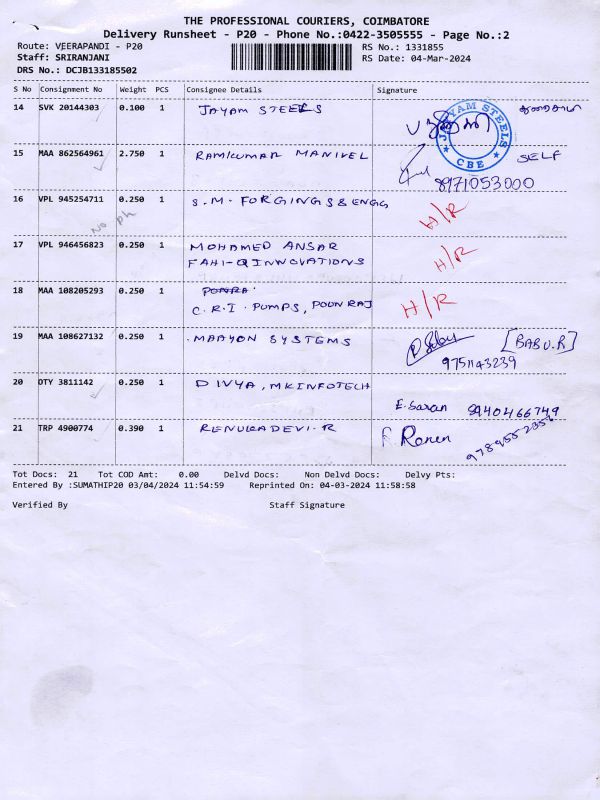 THE PROFESSIONAL COURIERS, COIMBATORE
Delivery Runsheet - P20 - Phone No.:0422-3505555 - Page No.:2
Route: VEERAPANDI - P20
RS No.: 1331855
Staff: SRIRANJANI
RS Date: 04-Mar-2024
DRS No.: DCJB133185502
S No Consignment No Weight PCS Consignee Details Signature
14 SVK 20144303 0.100 1 JAYAM STEELS
JAYAM STEELS
★ CBE ★
15 MAA 862564961 2.750 1 RAMKUMAR MANIVEL SELF
8971053000
16 VPL 945254711 0.250 1 S.M. FORGINGS & ENGG H/R
No Ph
17 VPL 946456823 0.250 1 MOHAMED ANSAR H/R
FAHI-QINNOVATIONS
18 MAA 108205293 0.250 1 H/R
C.R.I. PUMPS, POONRAJ
19 MAA 108627132 0.250 1 MAAYON SYSTEMS [BABU.R]
9751143239
20 OTY 3811142 0.250 1 DIVYA, MKINFOTECH
E. Saran 9940466749
21 TRP 4900774 0.390 1 RENUGADEVI.R
Tot Docs: 21 Tot COD Amt: 0.00 Delvd Docs: Non Delvd Docs: Delvy Pts:
Entered By :SUMATHIP20 03/04/2024 11:54:59 Reprinted On: 04-03-2024 11:58:58
Verified By Staff Signature